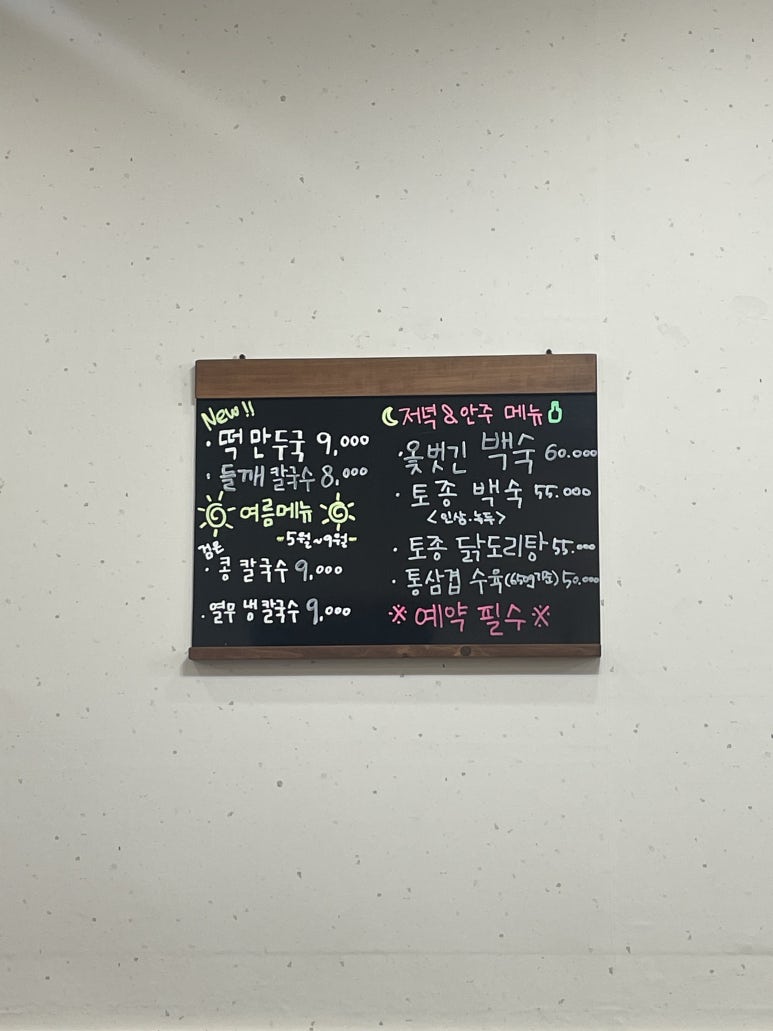 New!!
· 떡만두국 9,000
· 들깨칼국수 8,000
여름메뉴
-5월~9월-
검은
· 콩칼국수 9,000
· 열무냉칼국수 9,000
저녁&안주 메뉴
· 옻벗긴 백숙 60.000
· 토종 백숙 55.000
<인삼.녹두>
· 토종 닭도리탕 55.000
· 통삼겹 수육 50.000
※ 예약 필수 ※